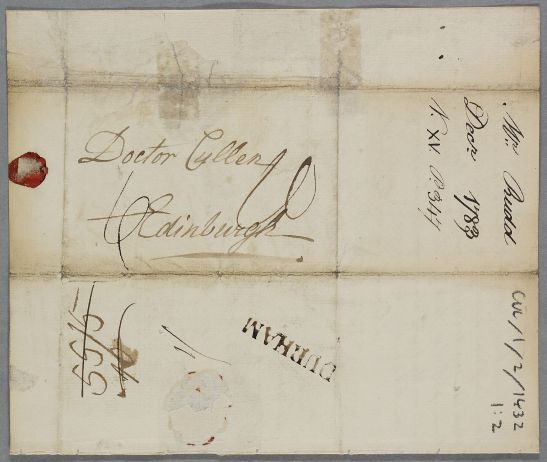 Doctor Cullen
Edinburgh
Mrs Rudd
Decr 1783
V. XV P. 344
DURHAM
CUL/1/2/1432
1:2